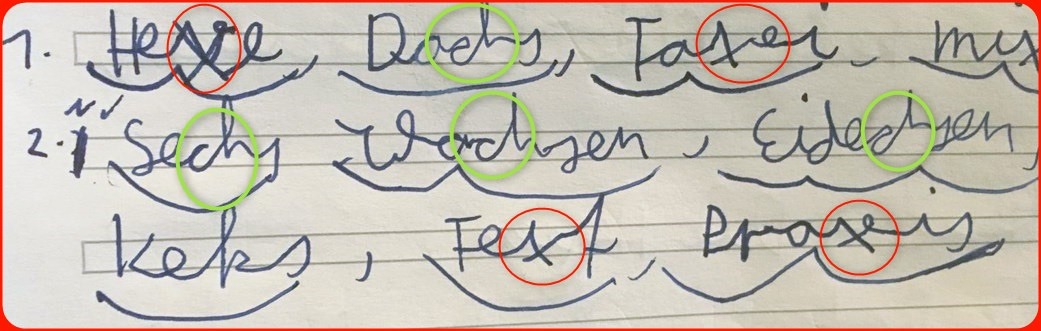 1. Hexe, Dachs, Taxi, mix
2. Sechs wachsen, Eidechsen,
Keks, Text, Praxis